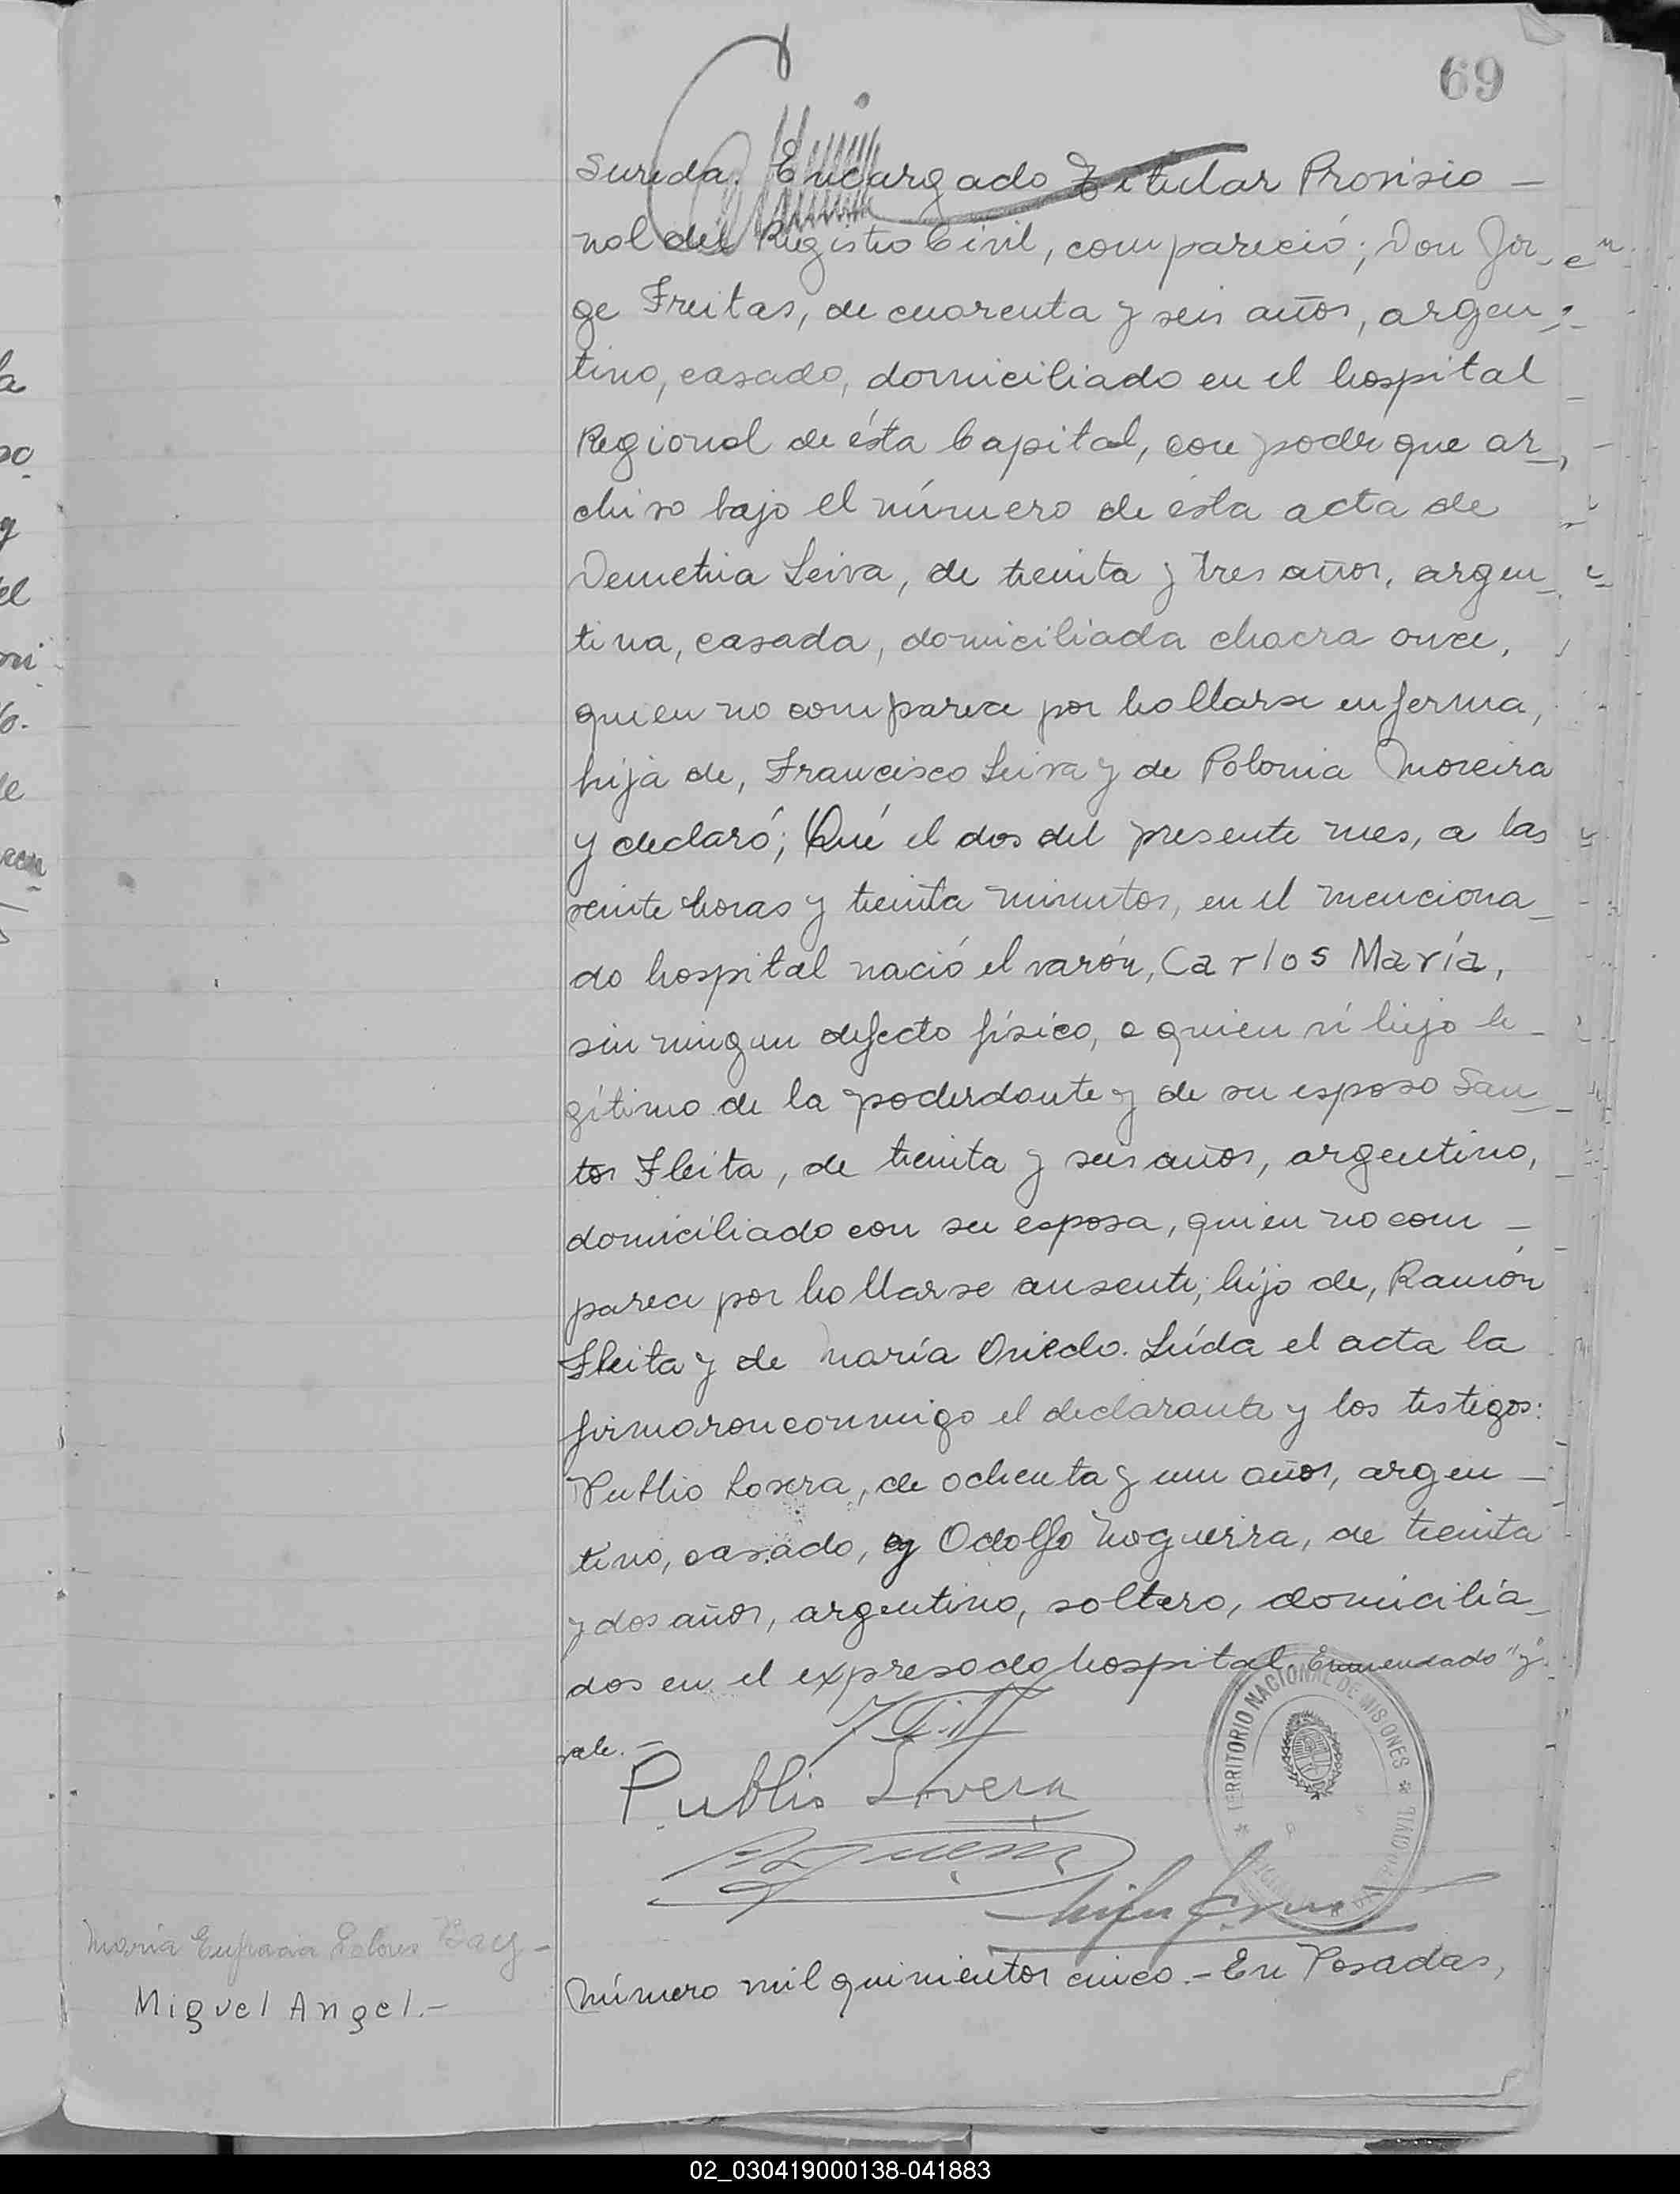 69
Sureda. Encargado Titular Provisio-
nal del Registro Civil, compareció; Don Jor-
ge Freitas, de cuarenta y seis años, argen-
tino, casado, domiciliado en el hospital
Regional de ésta Capital, con poder que ar-
chivo bajo el número de ésta acta de
Demetria Leiva, de treinta y tres años, argen-
tina, casada, domiciliada chacra once,
quien no comparece por hallarse enferma,
hija de, Francisco Leiva y de Polonia Moreira
y declaró; Qué el dos del presente mes, a las
veinte horas y treinta minutos, en el menciona-
do hospital nació el varón, Carlos María,
sin ningun defecto físico, a quien ví hijo le-
gítimo de la poderdante y de su esposo San-
tos Fleita, de treinta y seis años, argentino,
domiciliado con su esposa, quien no com-
parece por hallarse ausente, hijo de, Ramón
Fleita y de María Oviedo. Leída el acta la
firmaron conmigo el declarante y los testigos:
Publio Lovera, de ochenta y un años, argen-
tino, casado, y Odolfo Noguerra, de treinta
y dos años, argentino, soltero, domicilia-
dos en el expresado hospital. Enmendado "y"
vale.-
Publio Lovera
TERRITORIO NACIONAL DE MISIONES
María Dolores
Miguel Angel.-
Número mil quinientos cinco.- En Posadas,
02_030419000138-041883